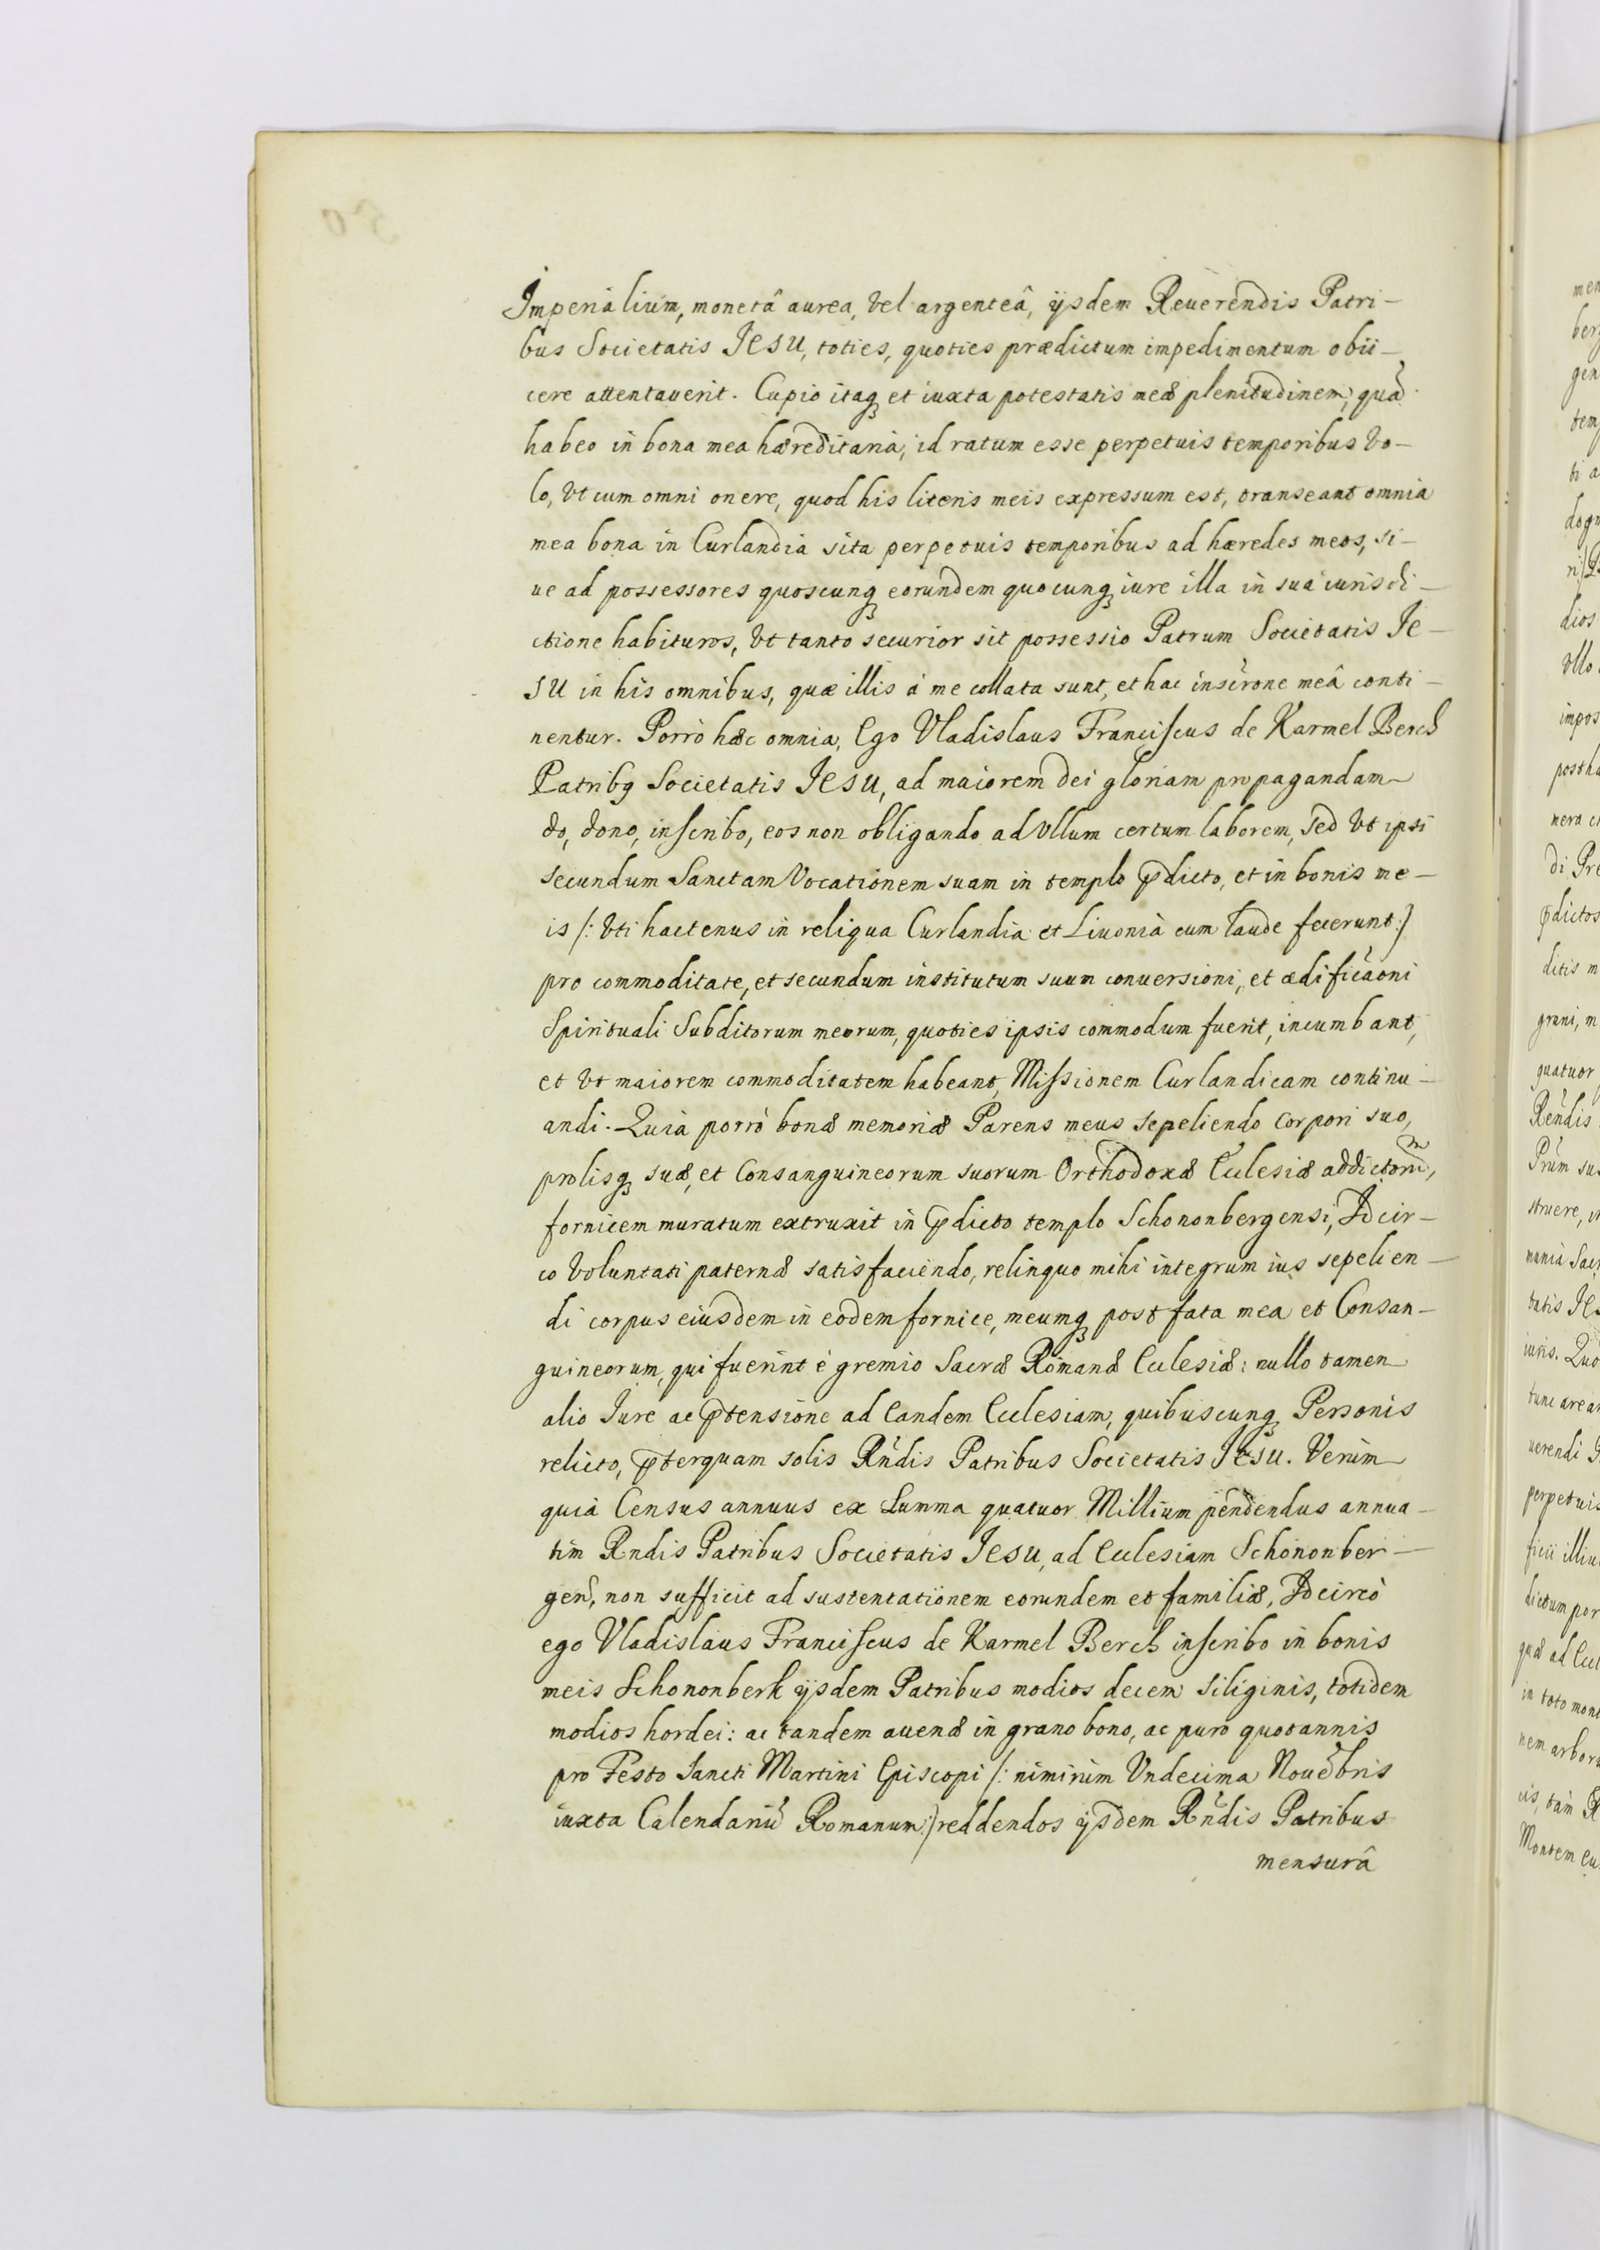 Imperialium, monetâ aurea, vel argenteâ, ijsdem Reuerendis Patri-
bus Societatis IESU, toties, quoties prædictum impedimentum obii-
cere attentauerit. Cupio itaq et iuxta potestatis meæ plenitudinem, quã
habeo in bona mea hæreditaria, id ratum esse perpetuis temporibus vo-
lo, vt cum omni onere, quod his literis meis expressum est, transeant omnia
mea bona in Curlandia sita perpetuis temporibus ad hæredes meos, si-
ue ad possessores quoscunq eorundem quocunq iure illa in sua iurisdi-
ctione habituros, vt tanto securior sit possessio Patrum Societatis Ie-
SU in his omnibus, quæ illis à me collata sunt, et hac inscrōne meâ conti-
nentur. Porrò hæc omnia, Ego Vladislaus Franciscus de Karmel Berch
Patribg Societatis IESU, ad maiorem dei gloriam propagandam
do, dono, inscribo, eos non obligando ad vllum certum laborem, sed vt ipsi
secundum Sanctam vocationem suam in templo p̄dicto, et in bonis me-
is /: vti hactenus in reliqua Curlandia et Liuonia cum laude fecerunt :/
pro commoditate, et secundum institutum suum conuersioni, et ædificãoni
Spirituali Subditorum meorum, quoties ipsis commodum fuerit, incumbant,
et vt maiorem commoditatem habeant, Missionem Curlandicam continu-
andi. Quia porrò bonæ memoriæ Parens meus sepeliendo corpori suo,
prolisq suæ, et Consanguineorum suorum Orthodoxæ Ecclesiæ addictorũ,
fornicem muratum extruxit in p̄dicto templo Schononbergensi, Idcir-
co voluntati paternæ satisfaciendo, relinquo mihi integrum ius sepelien-
di corpus eiusdem in eodem fornice, meumq post fata mea et Consan-
guineorum, qui fuerint è gremio Sacræ Romanæ Ecclesiæ: nullo tamen
alio Iure ac p̄tensione ad Eandem Ecclesiam, quibuscunq Personis
relicto, p̄terquam solis Rñdis Patribus Societatis IESU. Verùm
quia Census annuus ex Summa quatuor Millium pendendus annua-
tim Rndis Patribus Societatis IESU, ad Ecclesiam Schononber-
geñ, non sufficit ad sustentationem eorundem et familiæ, Idcircò
ego Vladislaus Franciscus de Karmel Berch inscribo in bonis
meis Schononberk ijsdem Patribus modios decem siliginis, totidem
modios hordei: ac tandem auenæ in grano bono, ac puro quotannis
pro Festo Sancti Martini Episcopi /: nimirùm Vndecima Nouẽbris
iuxta Calendariũ Romanum :/ reddendos ijsdem Rñdis Patribus
mensurâ